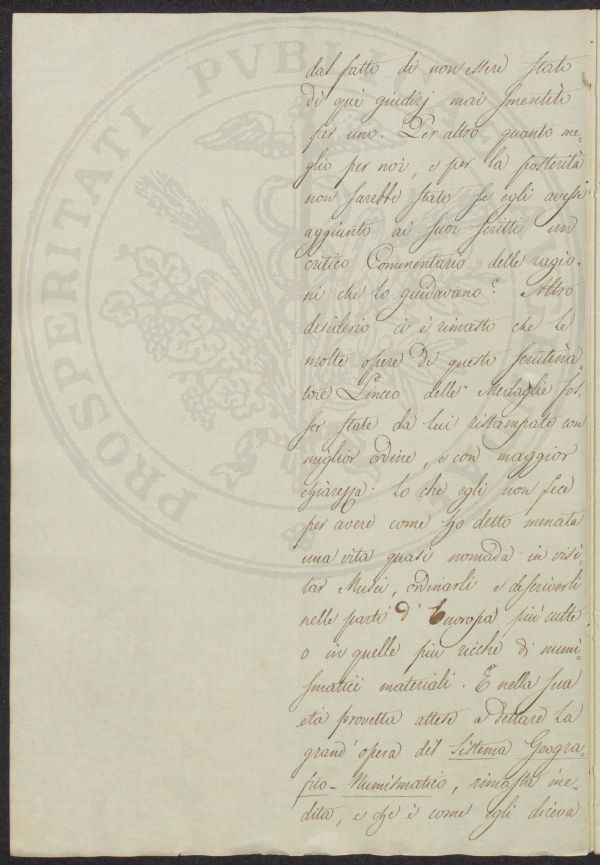 PROSPERITATI PUBLI
dal fatto di non essere stato
di quei giudizj mai smentito
per uno. Per altro quanto me-
glio per noi, e per la posterità
non sarebbe stato se egli avesse
aggiunto ai suoi scritti un
critico Commentario delle ragio-
ni che lo guidavano? Altro
desiderio ci è rimasto che le
molte opere di questo scrutina-
tore Linceo delle Medaglie fos-
ser state da lui ristampate con
miglior ordine, e con maggior
chiarezza: lo che egli non fece
per avere come ho detto menata
una vita quasi nomada in visi-
tar Musei, ordinarli e descriverli
nelle parti d'Europa più culte
o in quelle più ricche di numi-
smatici materiali. E nella sua
età provetta attese a dettare la
grand'opera del Sistema Geogra-
fico-Numismatico, rimasta ine-
dita, e che è come egli diceva